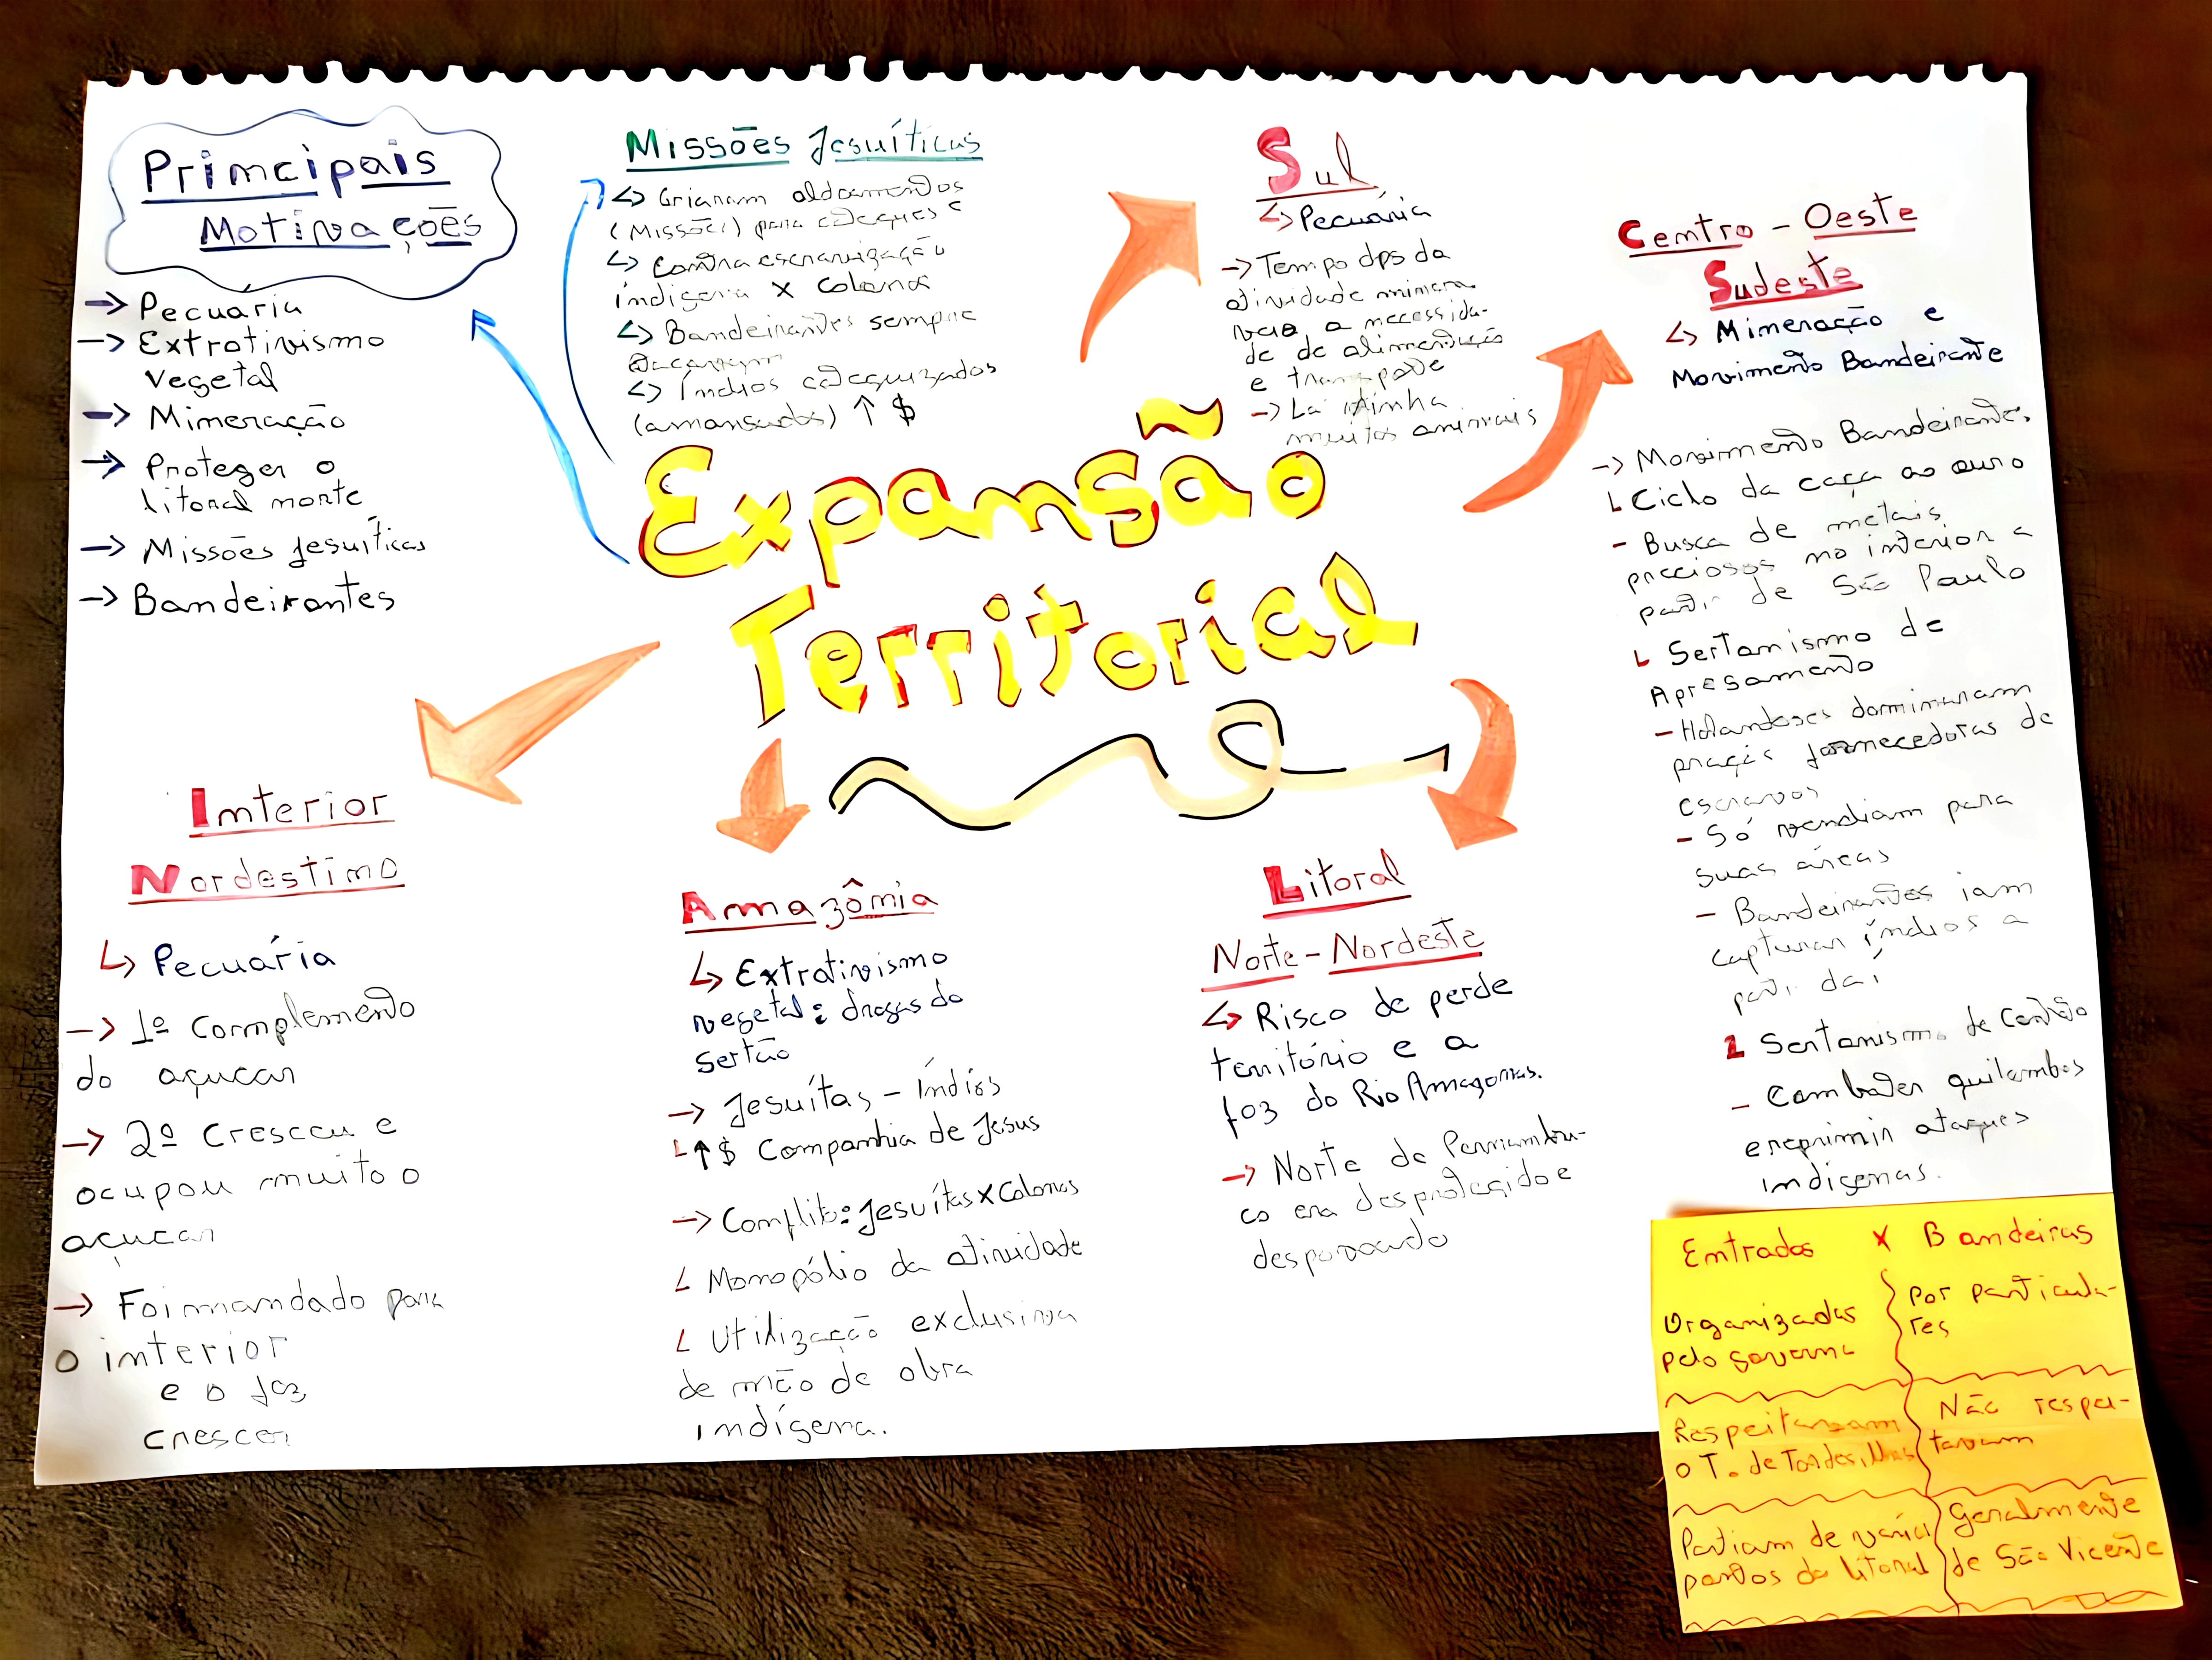 Principais
Motivações
→ Pecuaria
→ Extrativismo
vegetal
→ Mineração
→ Proteger o
litoral norte
→ Missões Jesuíticas
→ Bandeirantes
Missões Jesuíticas
↳ Criaram aldeamentos
(Missões) para catequese
↳ Contra escravização
indígena x colonos
↳ Bandeirantes sempre
atacavam
↳ Índios catequizados
(amansados) ↑ $
Sul
↳ Pecuária
→ Tempo dps da
atividade minera
a necessida-
de de alimentação
e transporte
→ Lá tinha
muitos animais
Centro - Oeste
Sudeste
↳ Mineração e
Movimento Bandeirante
→ Movimento Bandeirante.
L Ciclo da caça ao ouro
- Busca de metais
preciosos no interior a
partir de São Paulo
L Sertanismo de
Apresamento
- Holandeses dominaram
praças fornecedoras de
escravos
- Só vendiam para
suas áreas
- Bandeirantes iam
capturar índios a
partir daí
L Sertanismo de Contrato
- Combater quilombos
e reprimir ataques
indígenas.
Expansão
Territorial
Interior
Nordestino
↳ Pecuária
→ 1º Complemento
do açucar
→ 2º Cresceu e
ocupou muito o
açucar
→ Foi mandado para
o interior
e o faz
crescer
Amazônia
↳ Extrativismo
vegetal: drogas do
sertão
→ Jesuítas - Índios
L ↑ $ Companhia de Jesus
→ Conflito: Jesuítas x Colonos
L Monopólio da atividade
L Utilização exclusiva
de mão de obra
indígena.
Litoral
Norte - Nordeste
↳ Risco de perde
território e a
foz do Rio Amazonas.
→ Norte de Pernambu-
co era desprotegido e
despovoado
Entradas x Bandeiras
Organizadas
pelo governo
Por particula-
res
Respeitavam
o T. de Tordesilhas
Não respei-
tavam
Partiam de vários
pontos do litoral
Geralmente
de São Vicente